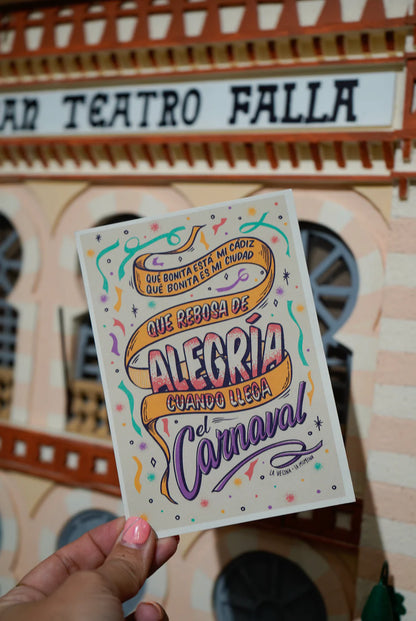 AN TEATRO FALLA
QUÉ BONITA ESTÁ MI CÁDIZ
QUÉ BONITA ES MI CIUDAD
QUE REBOSA DE
ALEGRÍA
CUANDO LLEGA
el
Carnaval
LA VECINA · LA MOMOVA